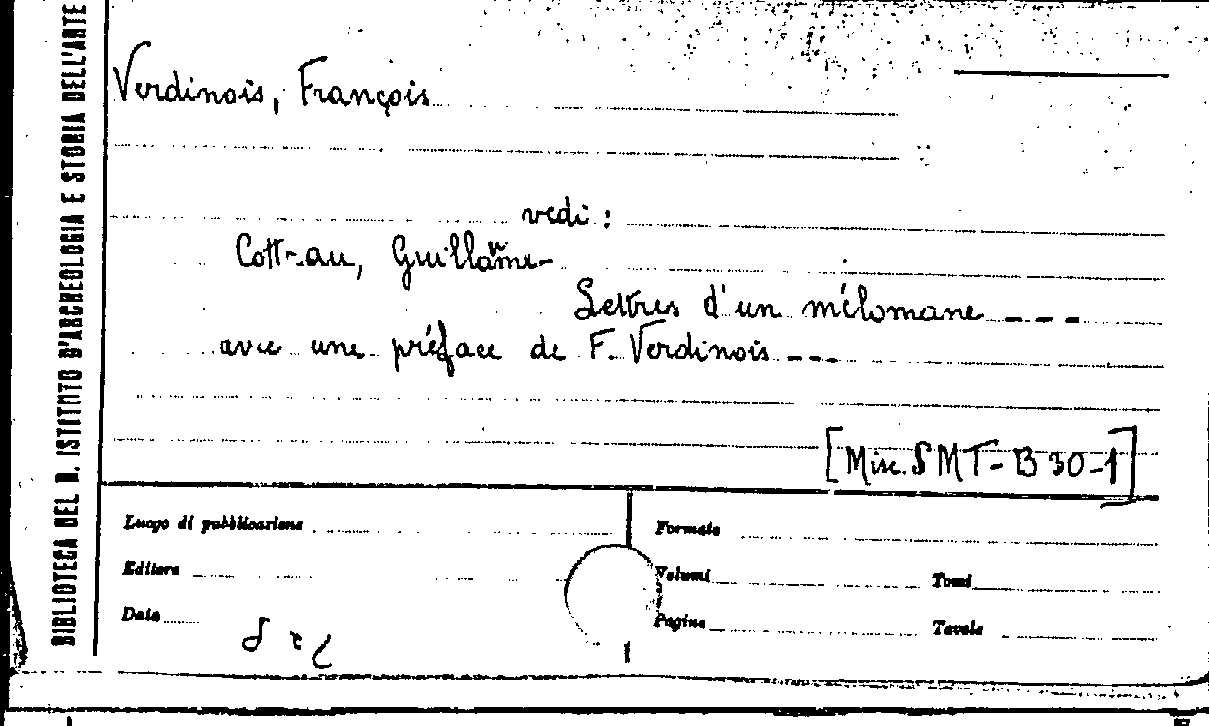 BIBLIOTECA DEL R. ISTITUTO D'ARCHEOLOGIA E STORIA DELL'ARTE
Verdinois, François
vedi:
Cottrau, Guillaume
Lettres d'un mélomane ---
avec une préface de F. Verdinois ---
[Misc. SMT-B 30-1]
Luogo di pubblicazione
Formato
Editore
Volumi
Tomi
Data
Pagine
Tavole